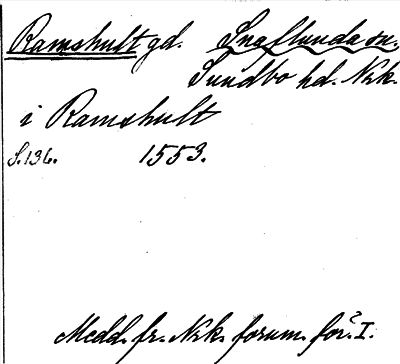 Ramshult gd. Snaflunda sn.
Sundbo hd. Nrk.
i Ramshult
S.136. 1553.
Medd. fr. Nrk. fornm. för. I.